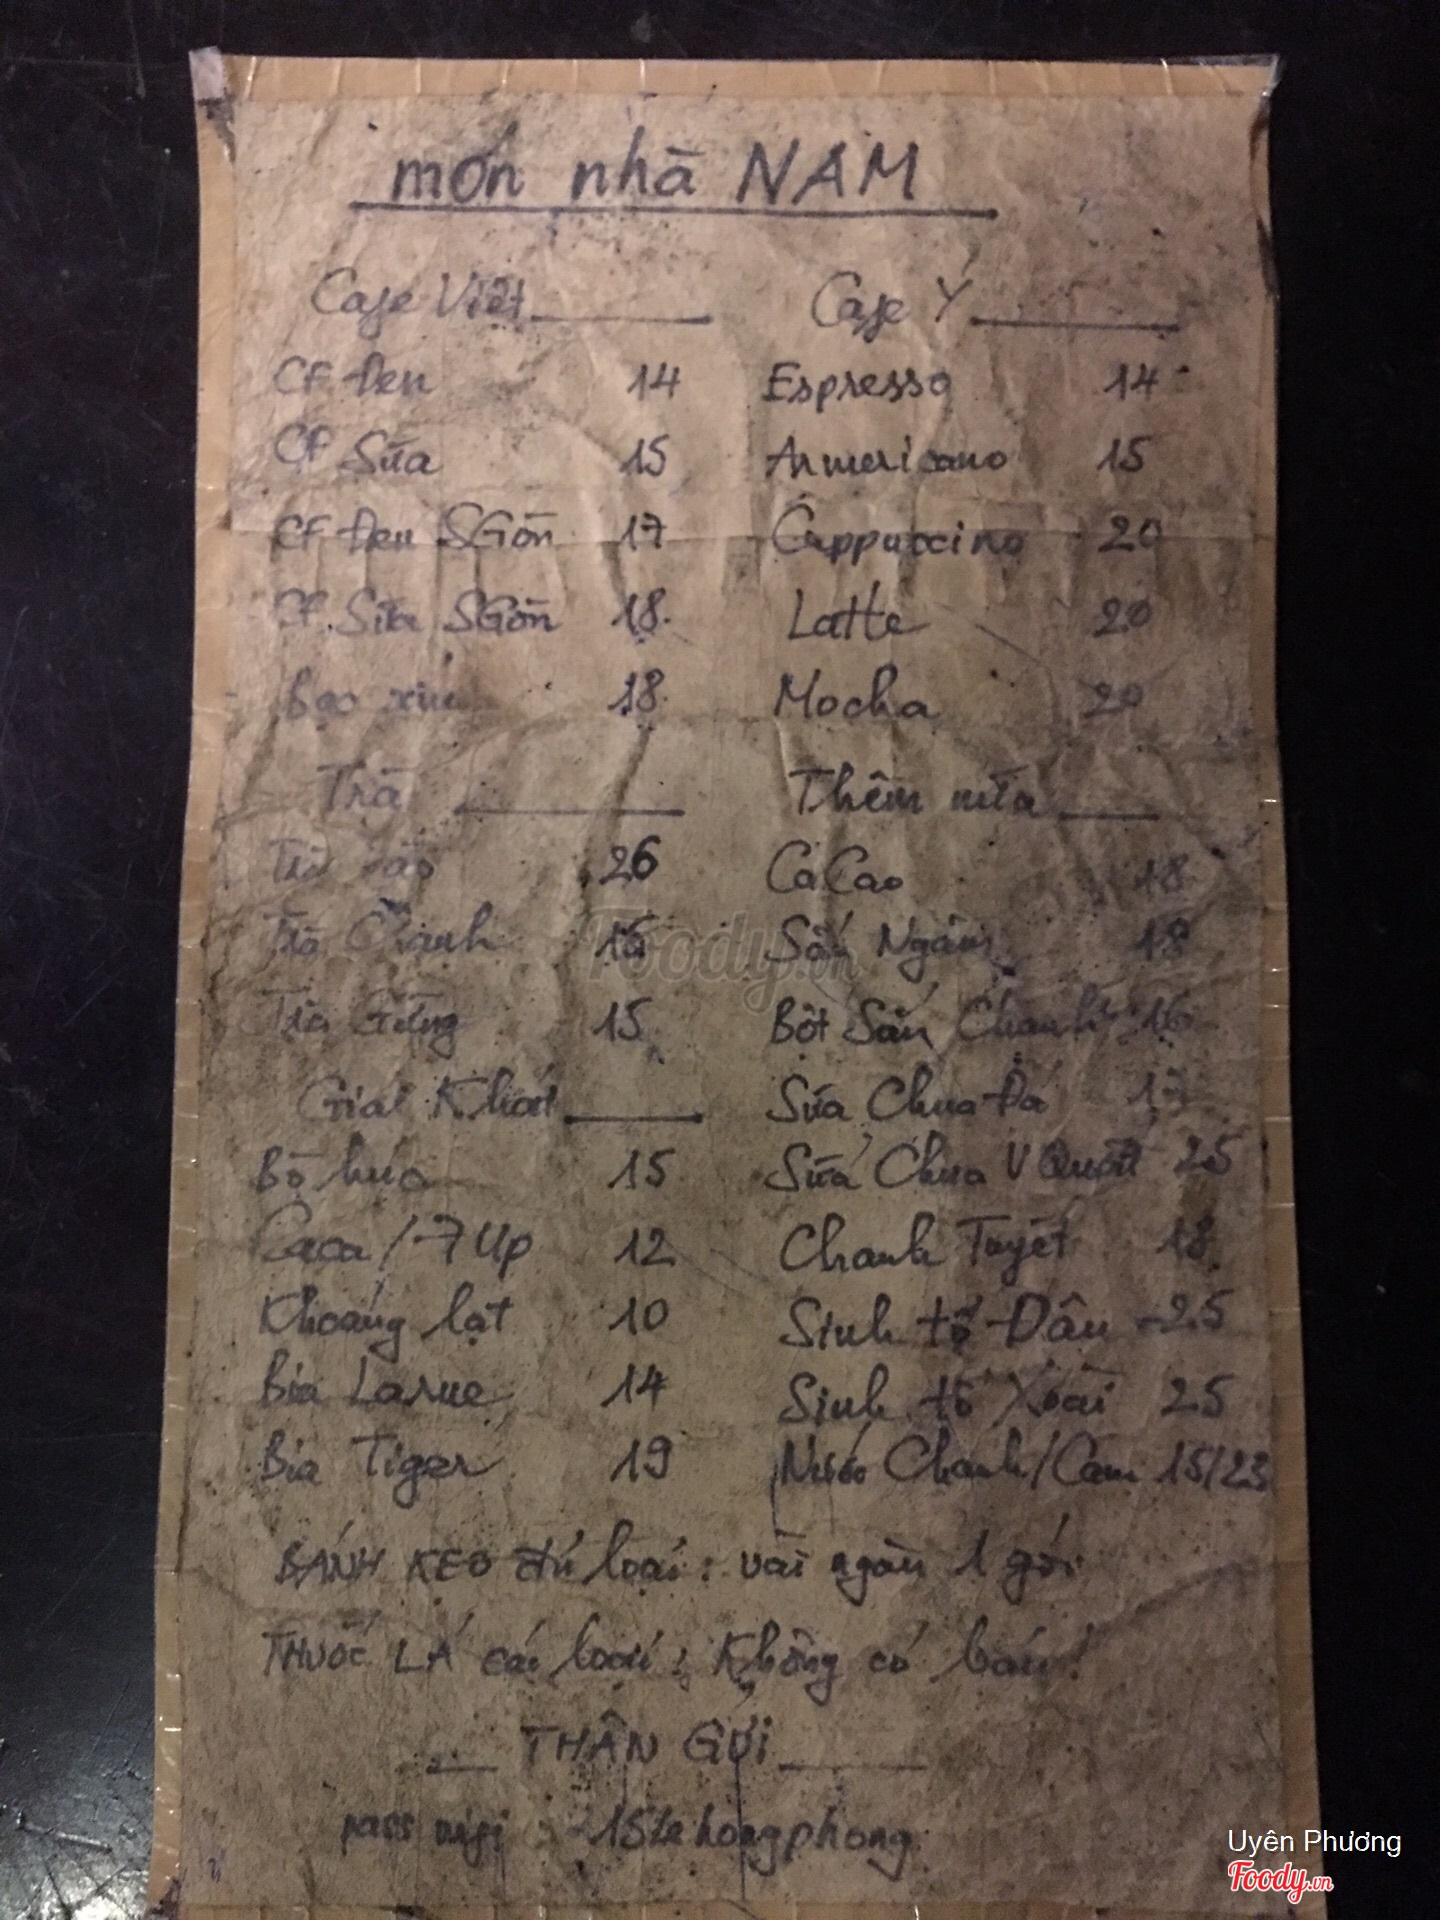 món nhà NAM
Cafe Việt
CF Đen 14
CF Sữa 15
CF Đen SGòn 17
CF Sữa SGòn 18
Bạc xỉu 18
Trà
Trà 26
Trà Chanh
Trà Gừng 15
Giải Khát
Bò húc 15
Coca / 7 Up 12
Khoáng lạt 10
Bia Larue 14
Bia Tiger 19
Cafe Ý
Espresso 14
Armericano 15
Cappuccino 20
Latte 20
Mocha 20
Thêm nữa
CaCao 18
Sấu Ngâm 18
Bột Sắn Chanh 16
Sữa Chua Đá
Sữa Chua V Quất 25
Chanh Tuyết 18
Sinh tố Dâu 25
Sinh tố Xoài 25
Nước Chanh/Cam 15/23
BÁNH KẸO đủ loại : vài ngàn 1 gói
THUỐC LÁ các loại : Không có bán !
THÂN GỬI
pass wifi 15lehongphong
Foody.vn
Uyên Phương
Foody.vn